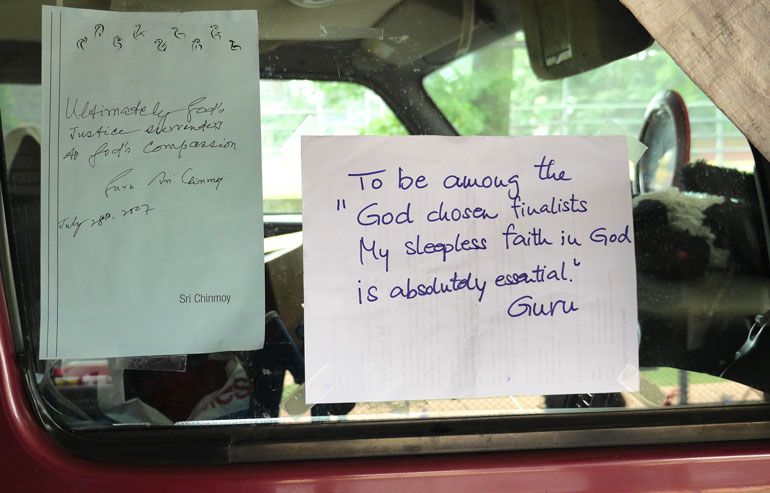 Ultimately God's
Justice surrenders
to God's Compassion
Guru Sri Chinmoy
July 28th, 2007
Sri Chinmoy
To be among the
" God chosen finalists
My sleepless faith in God
is absolutely essential."
Guru